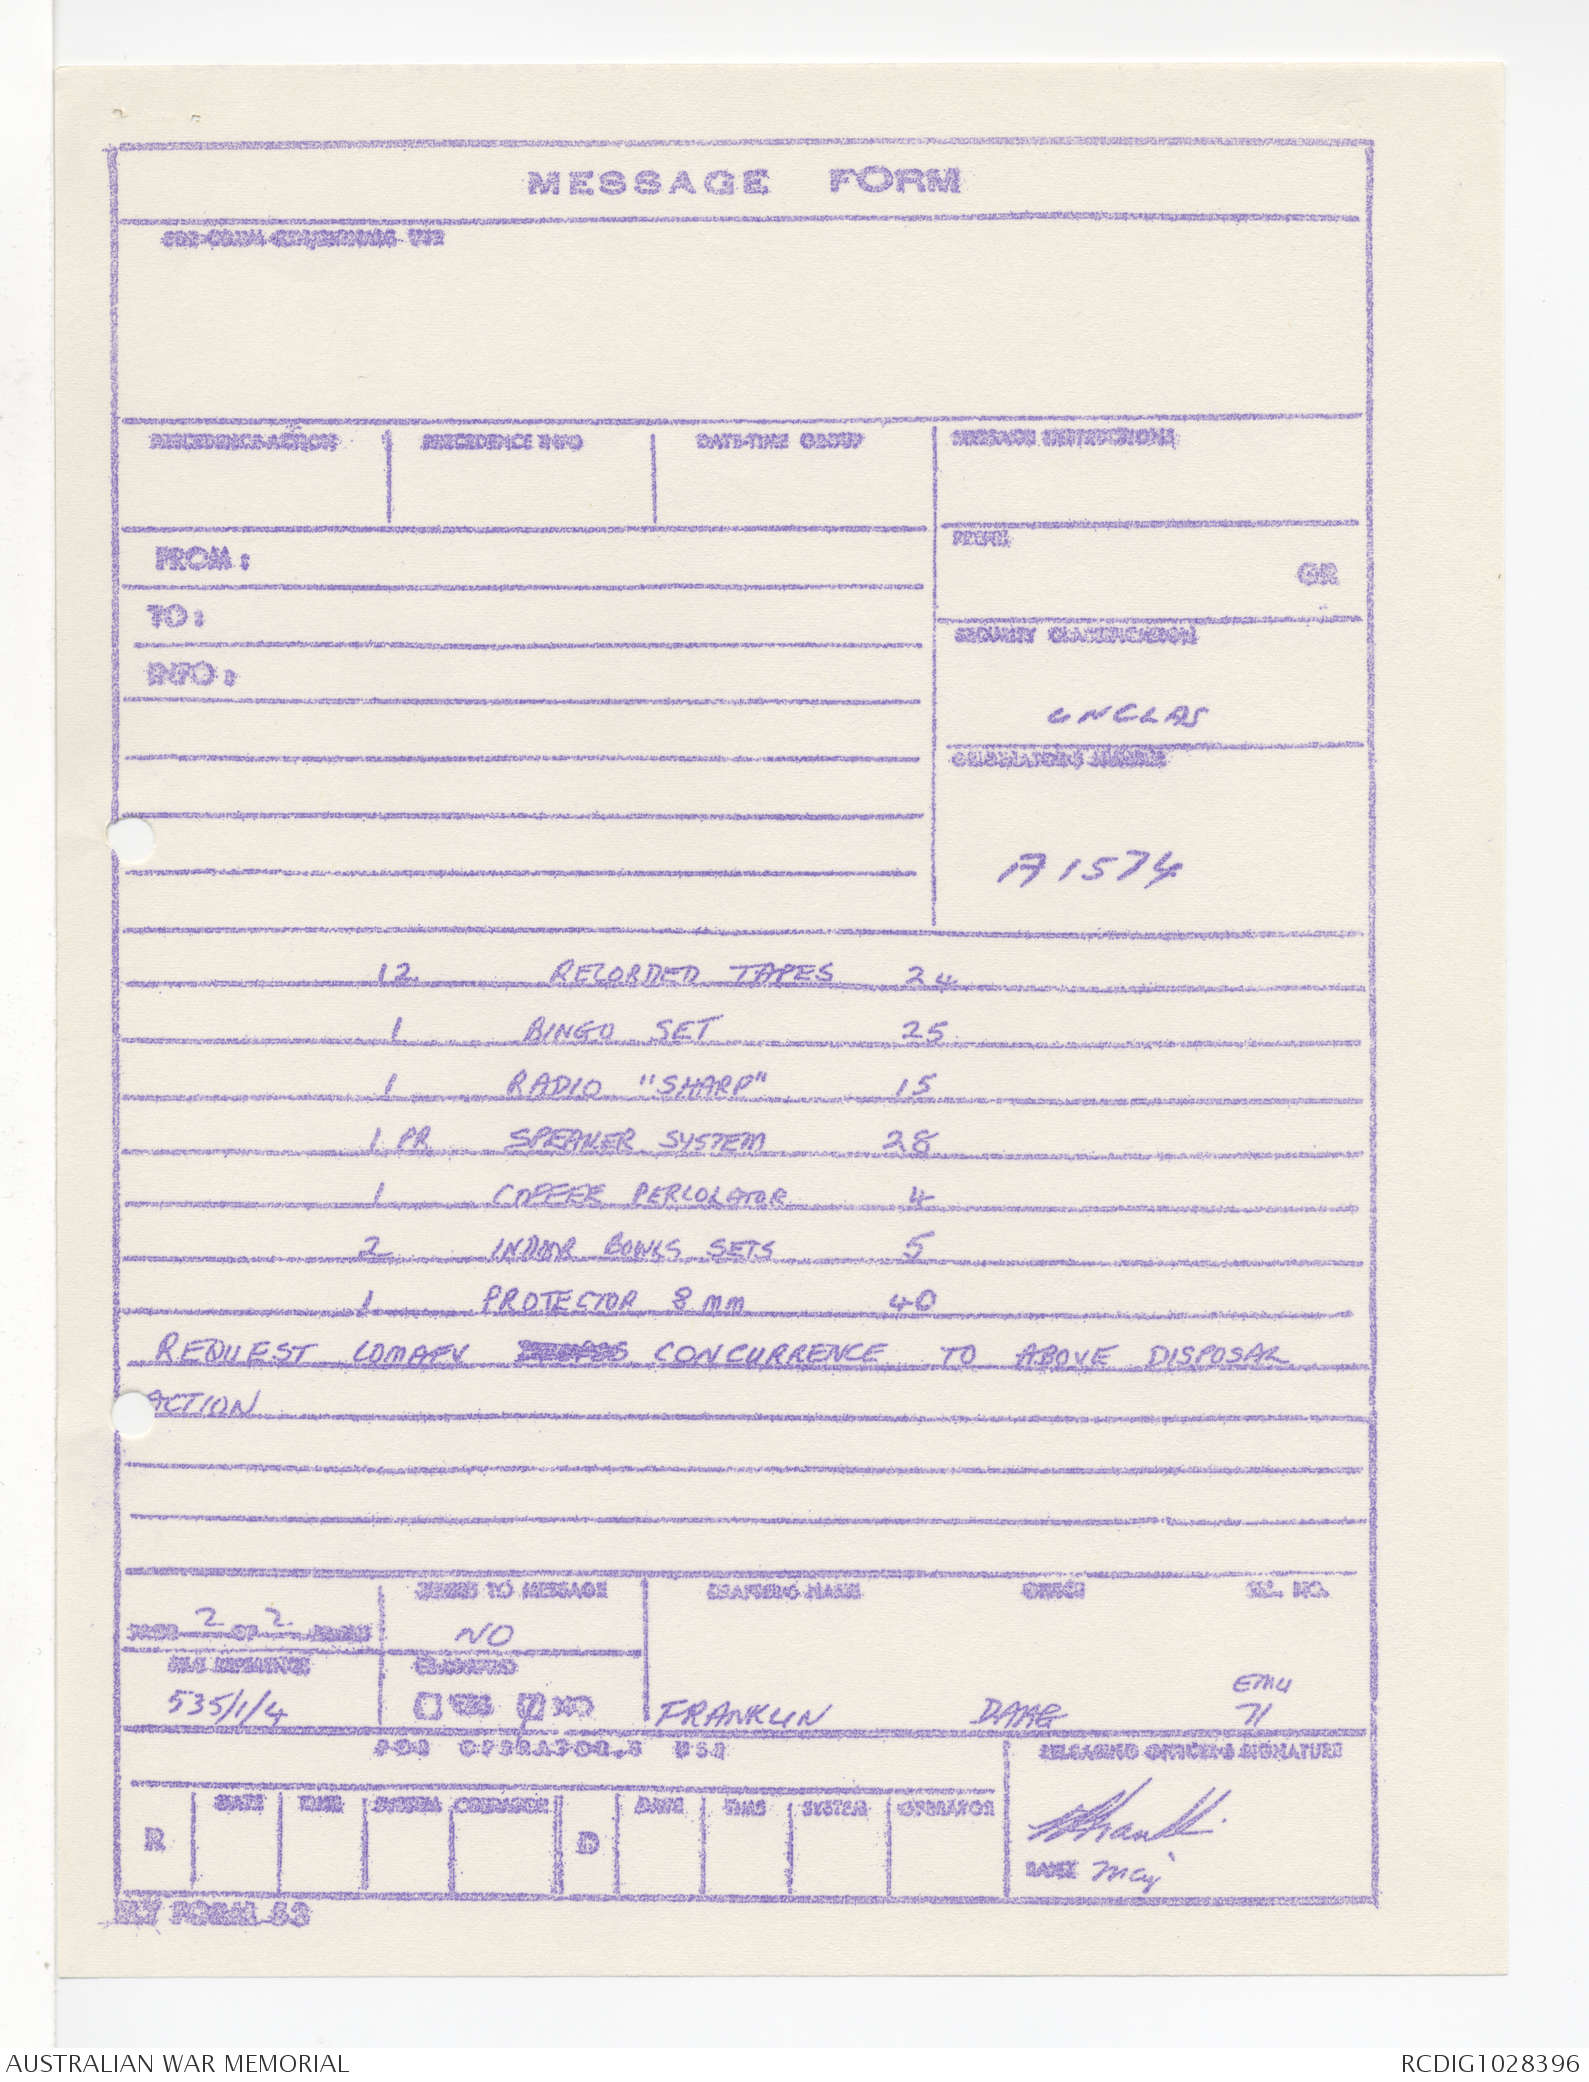 MESSAGE FORM
FOR COMM CEN/SIGNALS USE
PRECEDENCE-ACTION PRECEDENCE INFO DATE-TIME GROUP MESSAGE INSTRUCTIONS
FROM:
PREFIX
GR
TO:
SECURITY CLASSIFICATION
INFO:
UNCLAS
ORIGINATOR'S NUMBER
A1574
12 RECORDED TAPES 24
1 BINGO SET 25
1 RADIO "SHARP" 15
1 PR SPEAKER SYSTEM 28
1 COFFEE PERCOLATOR 4
2 INDOOR BOWLS SETS 5
1 PROTECTOR 8 MM 40
REQUEST COMAFV CONCURRENCE TO ABOVE DISPOSAL
ACTION
PAGE 2 OF 2 PAGES
REFERS TO MESSAGE
NO
DRAFTER'S NAME OFFICE TEL. NO.
FILE REFERENCE
535/1/4
CLASSIFIED
YES NO
FRANKLIN DAAG EMU 71
FOR OPERATOR'S USE
RELEASING OFFICER'S SIGNATURE
R DATE TIME SYSTEM OPERATOR D DATE TIME SYSTEM OPERATOR
RANK Maj
FORM 63
AUSTRALIAN WAR MEMORIAL
RCDIG1028396